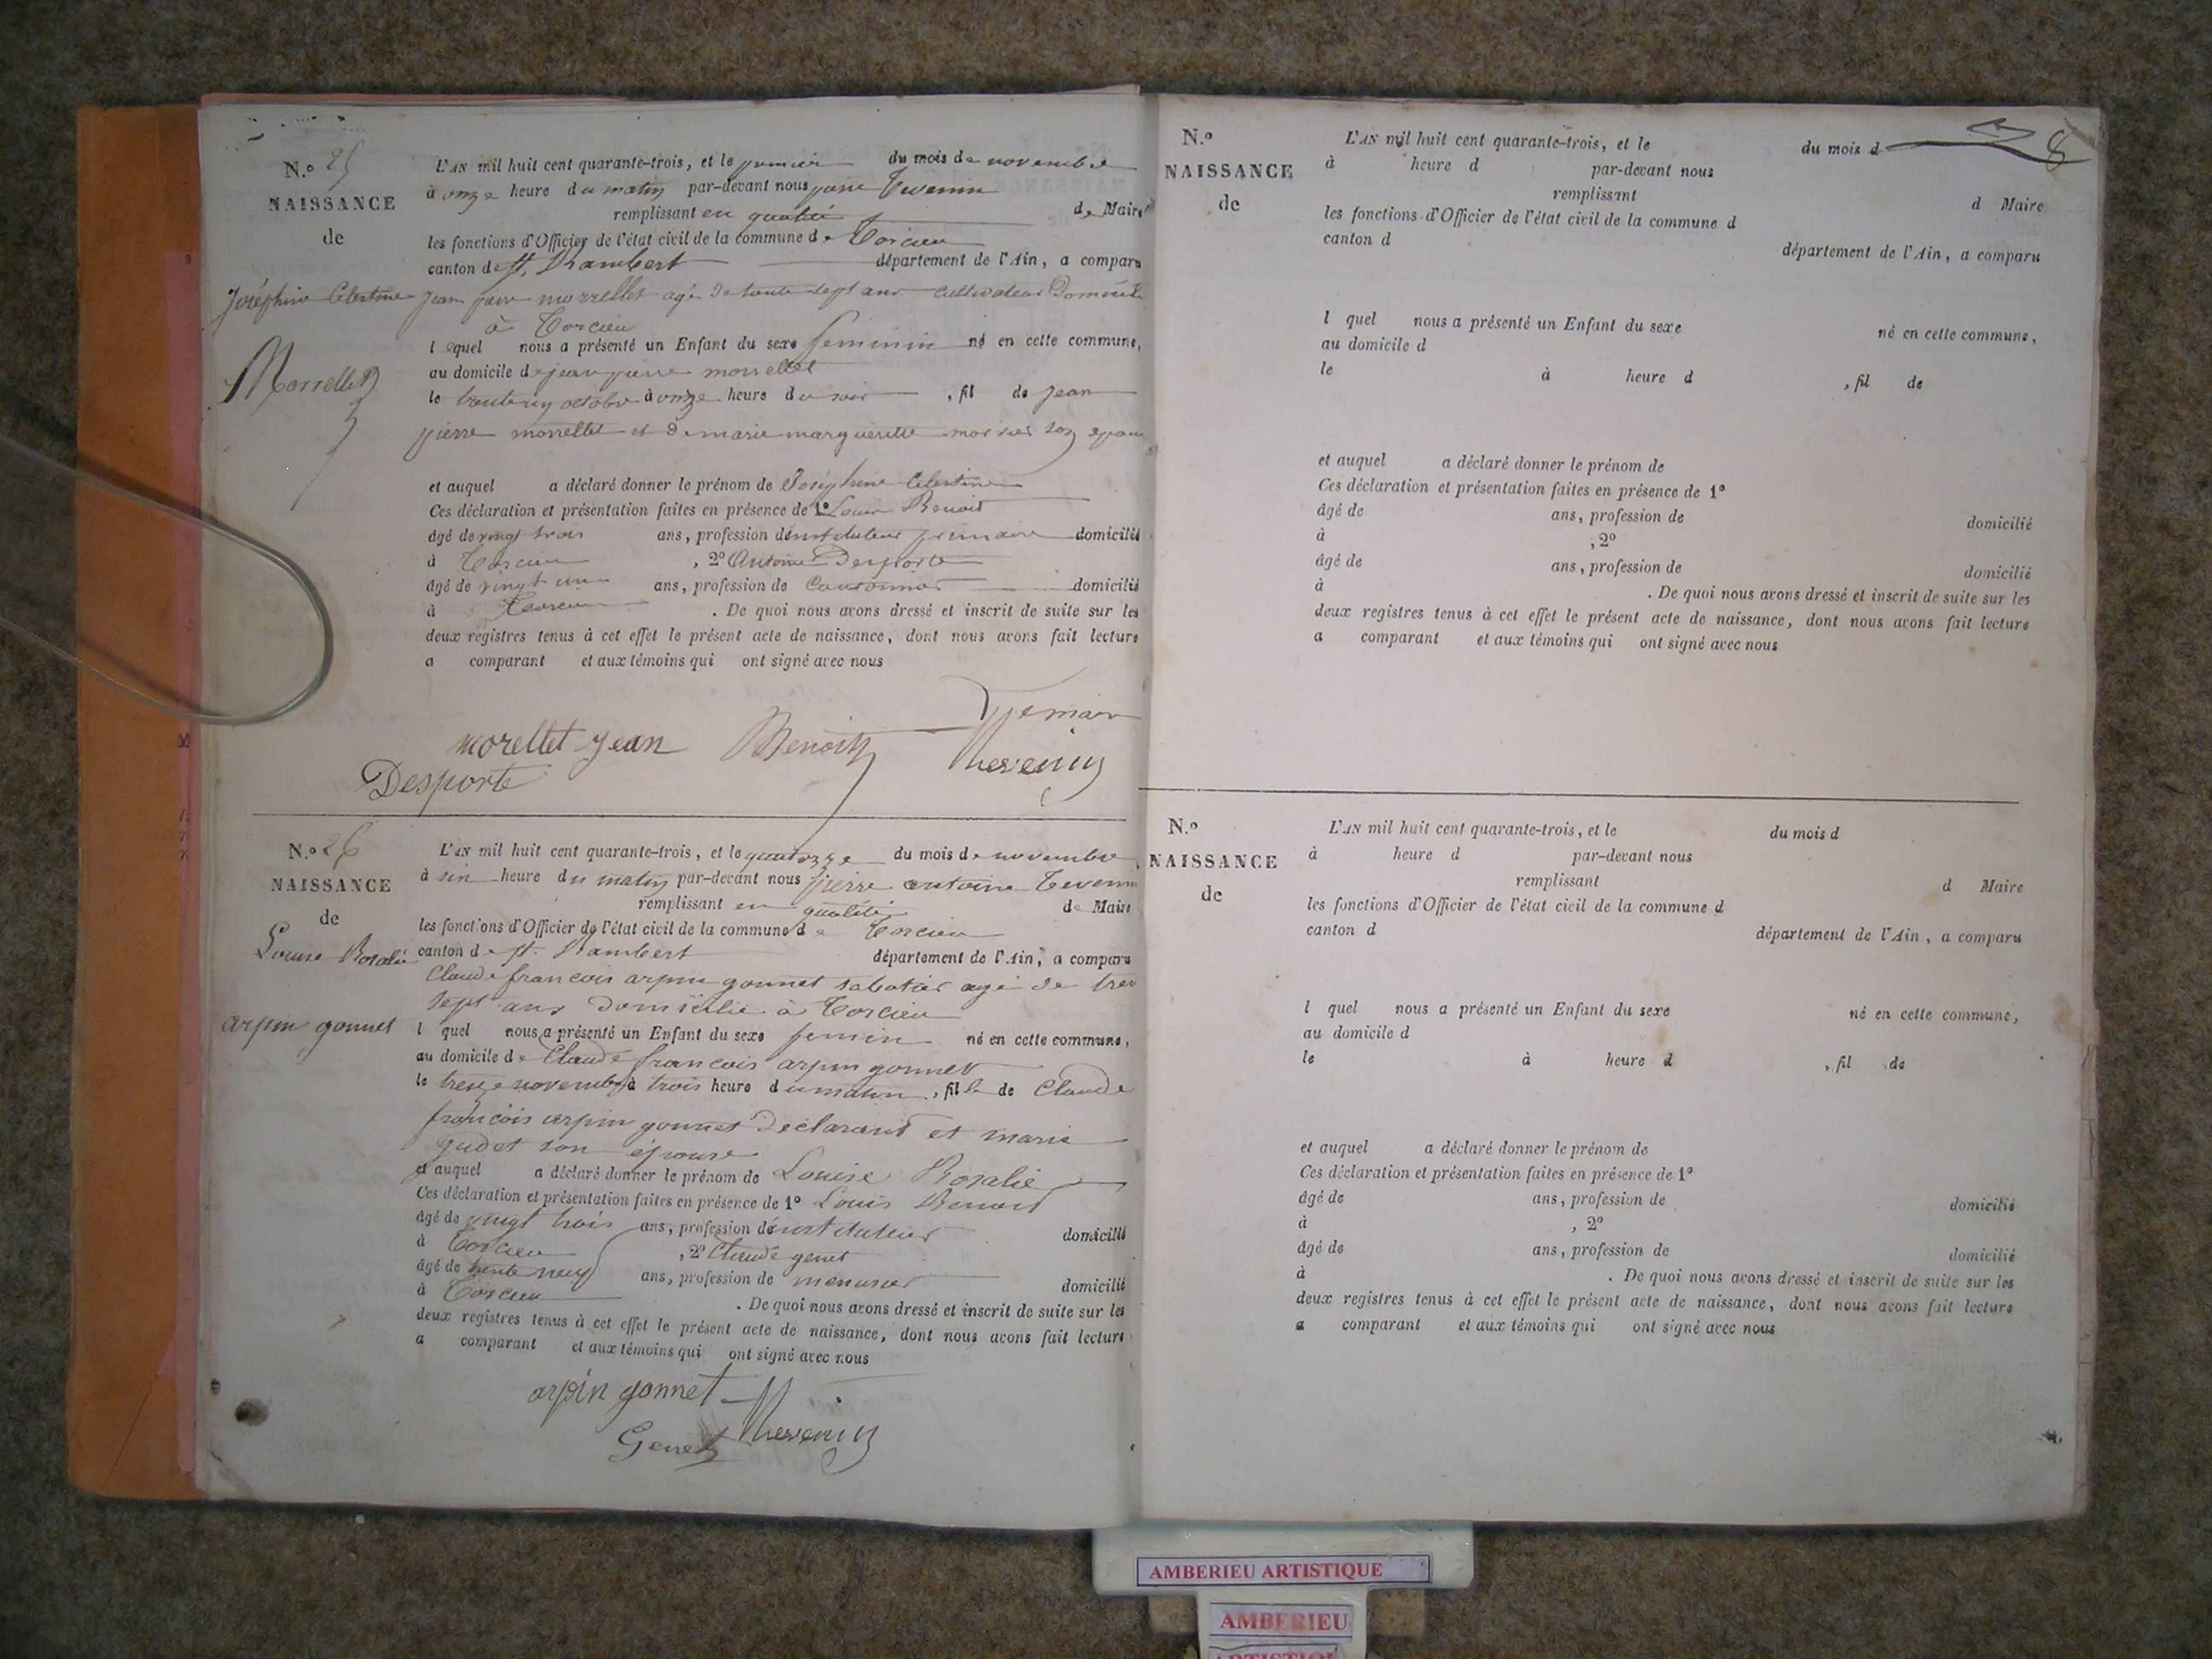 N.o 25
NAISSANCE
de
Joséphine Celestine
Morrellet
L'AN mil huit cent quarante-trois, et le premier du mois de novembre
à onze heure du matin par-devant nous pierre Tevenin
remplissant en qualité de Maire
les fonctions d'Officier de l'état civil de la commune de Torcieu
canton de St. Rambert département de l'Ain, a comparu
jean pierre morrellet agé de trente sept ans cultivateur Domicilié
à Torcieu
lequel nous a présenté un Enfant du sexe feminin né en cette commune,
au domicile de jean pierre morrellet
le trente un octobre à onze heure du soir , fil de jean
pierre morrellet et de marie marguerite son epouse
et auquel a déclaré donner le prénom de Joséphine Celestine
Ces déclaration et présentation faites en présence de 1o Louis Benoit
âgé de vingt trois ans, profession d'instituteur primaire domicilié
à Torcieu , 2o Antoine Desporte
âgé de vingt un ans, profession de Cantonnier domicilié
à Torcieu . De quoi nous avons dressé et inscrit de suite sur les
deux registres tenus à cet effet le présent acte de naissance, dont nous avons fait lecture
a comparant et aux témoins qui ont signé avec nous
morellet jean Benoit
Desporte Thevenin
N.o 26
NAISSANCE
de
Louise Rosalie
arpin gonnet
L'AN mil huit cent quarante-trois, et le quatorze du mois de novembre
à sin heure du matin par-devant nous pierre antoine Tevenin
remplissant en qualité de Maire
les fonctions d'Officier de l'état civil de la commune de Torcieu
canton de St. Rambert département de l'Ain, a comparu
Claude francois arpin gonnet sabotier agé de tren
sept ans domicilié à Torcieu
l quel nous a présenté un Enfant du sexe femin né en cette commune,
au domicile de Claude francois arpin gonnet
le treize novembre à trois heure du matin , fille de Claude
françois arpin gonnet Declarant et marie
gudet son épouse
et auquel a déclaré donner le prénom de Louise Rosalie
Ces déclaration et présentation faites en présence de 1o Louis Benoit
âgé de vingt trois ans, profession d'instituteur domicilié
à Torcieu , 2o Claude genet
âgé de trente neuf ans, profession de menusier domicilié
à Torcieu . De quoi nous avons dressé et inscrit de suite sur les
deux registres tenus à cet effet le présent acte de naissance, dont nous avons fait lecture
a comparant et aux témoins qui ont signé avec nous
arpin gonnet Thevenin
Genet
8
N.o
NAISSANCE
de
L'AN mil huit cent quarante-trois, et le du mois d
à heure d par-devant nous
remplissant d Maire
les fonctions d'Officier de l'état civil de la commune d
canton d département de l'Ain, a comparu
l quel nous a présenté un Enfant du sexe né en cette commune,
au domicile d
le à heure d , fil de
et auquel a déclaré donner le prénom de
Ces déclaration et présentation faites en présence de 1o
âgé de ans, profession de domicilié
à , 2o
âgé de ans, profession de domicilié
à . De quoi nous avons dressé et inscrit de suite sur les
deux registres tenus à cet effet le présent acte de naissance, dont nous avons fait lecture
a comparant et aux témoins qui ont signé avec nous
N.o
NAISSANCE
de
L'AN mil huit cent quarante-trois, et le du mois d
à heure d par-devant nous
remplissant d Maire
les fonctions d'Officier de l'état civil de la commune d
canton d département de l'Ain, a comparu
l quel nous a présenté un Enfant du sexe né en cette commune,
au domicile d
le à heure d , fil de
et auquel a déclaré donner le prénom de
Ces déclaration et présentation faites en présence de 1o
âgé de ans, profession de domicilié
à , 2o
âgé de ans, profession de domicilié
à . De quoi nous avons dressé et inscrit de suite sur les
deux registres tenus à cet effet le présent acte de naissance, dont nous avons fait lecture
a comparant et aux témoins qui ont signé avec nous
AMBERIEU ARTISTIQUE
AMBERIEU
ARTISTIQUE